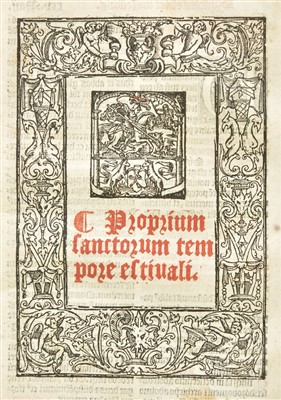 ¶ Proprium
sanctorum tem
pore estiuali.